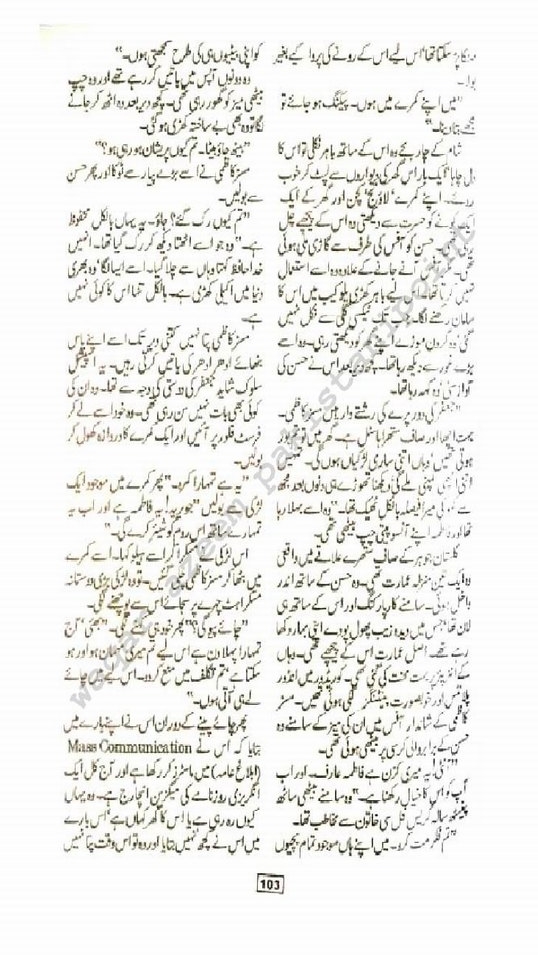 سکتا تھا، اس لیے اس کے رونے کی پروا کیے بغیر
بولا۔
"میں اپنے کمرے میں ہوں۔ پیکنگ ہو جائے تو
مجھے بتا دینا۔"
شام کے چار بجے وہ اس کے ساتھ باہر نکلی تو اس کا
دل چاہا، ایک بار اس گھر کی دیواروں سے لپٹ کر خوب
روئے۔ اپنے کمرے، لاؤنج، کچن اور گھر کے ایک
ایک کونے کو حسرت سے دیکھتی وہ اس کے پیچھے چل
حسن کو آفس کی طرف سے گاڑی ملی ہوئی
تھی۔ آفس آنے جانے کے علاوہ وہ اسے استعمال
نہیں کرتا تھا۔ اس لیے باہر کھڑی یلو کیب میں اس کا
سامان رکھنے لگا۔ جب تک ٹیکسی گلی سے نکل نہیں
گئی وہ گردن موڑے اپنے گھر کو دیکھتی رہی۔ وہ اسے
بڑے غور سے دیکھ رہا تھا۔ کچھ دیر بعد اس نے حسن کی
آواز سنی وہ کہہ رہا تھا۔
"جعفر کی دور پرے کی رشتے دار ہیں مسز کاظمی۔
بہت اچھا اور صاف ستھرا ہاسٹل ہے۔ گھر میں تو تم بور
ہوتی تھیں، وہاں اتنی ساری لڑکیاں ہوں گی۔ تمہیں
اتنی اچھی کمپنی ملے گی دیکھنا تھوڑے ہی دنوں بعد مجھ
سے کہو گی میرا فیصلہ بالکل ٹھیک تھا۔" وہ اسے بہلا رہا
تھا اور فاطمہ اپنے آنسو پیتی چپ بیٹھی تھی۔
گلستان جوہر کے صاف ستھرے علاقے میں واقعی
وہ ایک تین منزلہ عمارت تھی۔ وہ حسن کے ساتھ اندر
داخل ہوئی۔ سامنے کار پارکنگ اور اس کے ساتھ ہی
لان تھا، جس میں دیدہ زیب پھول پودے اپنی بہار دکھا
رہے تھے۔ اصل عمارت اس کے پیچھے تھی۔ وہاں
کے انٹیریر پر بہت محنت کی گئی تھی۔ کوریڈور میں انڈور
پلانٹس اور خوبصورت پینٹنگز لگی ہوئی تھیں۔ مسز
کاظمی کے شاندار آفس میں ان کی میز کے سامنے وہ
حسن کے برابر والی کرسی پر بیٹھی ہوئی تھی۔
"آنٹی! یہ میری کزن ہے فاطمہ عارف۔ اور اب
آپ کو اس کا خیال رکھنا ہے۔" وہ سامنے بیٹھی ساٹھ
پینسٹھ سالہ گریس فل سی خاتون سے مخاطب تھا۔
"تم فکر مت کرو۔ میں اپنے ہاں موجود تمام بچیوں
کو اپنی بیٹیوں ہی کی طرح سمجھتی ہوں۔"
وہ دونوں آپس میں باتیں کر رہے تھے اور وہ چپ
بیٹھی میز کو گھور رہی تھی۔ کچھ دیر بعد وہ اٹھ کر جانے
لگا تو وہ بھی بے ساختہ کھڑی ہو گئی۔
"بیٹھ جاؤ بیٹا۔ تم کیوں پریشان ہو رہی ہو؟"
مسز کاظمی نے اسے بڑے پیار سے ٹوکا اور پھر حسن
سے بولیں۔
"تم کیوں رک گئے؟ جاؤ۔ یہ یہاں بالکل محفوظ
ہے۔" وہ جو اسے اٹھتا دیکھ کر رک گیا تھا۔ انہیں
خدا حافظ کہتا وہاں سے چلا گیا۔ اسے ایسا لگا، وہ بھری
دنیا میں اکیلی کھڑی ہے۔ بالکل تنہا اس کا کوئی نہیں
ہے۔
مسز کاظمی پتا نہیں کتنی دیر تک اسے اپنے پاس
بٹھائے ادھر ادھر کی باتیں کرتی رہیں۔ یہ اسپیشل
سلوک شاید جعفر کی دوستی کی وجہ سے تھا۔ وہ ان کی
کوئی بھی بات نہیں سن رہی تھی۔ وہ خود اسے لے کر
فرسٹ فلور پر آئیں اور ایک کمرے کا دروازہ کھول کر
بولیں۔
"یہ ہے تمہارا کمرہ۔" پھر کمرے میں موجود ایک
لڑکی سے بولیں "جویریہ! یہ فاطمہ ہے اور اب یہ
تمہارے ساتھ اس روم کو شیئر کرے گی۔"
اس لڑکی نے مسکرا کر اسے ہیلو کہا۔ اسے کمرے
میں بٹھا کر مسز کاظمی چلی گئیں۔ تو وہ لڑکی بڑی دوستانہ
مسکراہٹ چہرے پر سجائے اس سے پوچھنے لگی۔
"چائے پیو گی؟" پھر خود ہی بولی۔ "بھئی، آج
تمہارا پہلا دن ہے اس لیے تم میری مہمان ہو اور ہو
سکتا ہے تم تکلف میں منع کر دو۔ اس لیے میں چائے
لے ہی آتی ہوں۔"
پھر چائے پینے کے دوران اس نے اپنے بارے میں
بتایا کہ اس نے Mass Communication
(ابلاغ عامہ) میں ماسٹرز کر رکھا ہے اور آج کل ایک
انگریزی روزنامے کی میگزین انچارج ہے۔ وہ یہاں
کیوں رہ رہی ہے یا اس کا گھر کہاں ہے، اس بارے
میں اس نے کچھ نہیں بتایا اور وہ تو اس وقت پتا نہیں
103
waqar azeem pakistanipoint